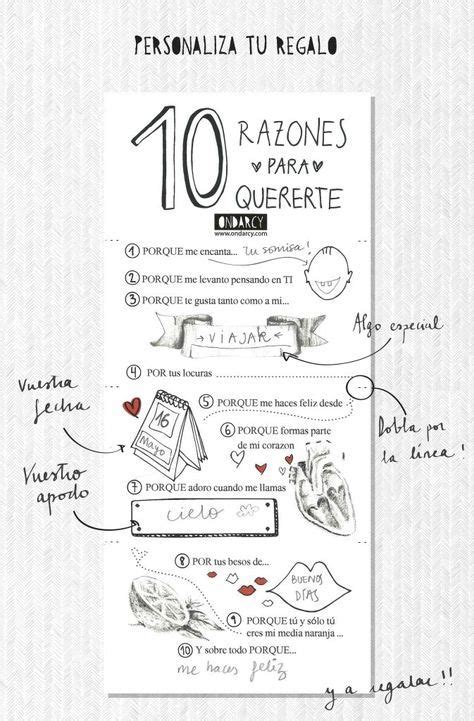 PERSONALIZA TU REGALO
10 RAZONES
PARA
QUERERTE
ONDARCY
www.ondarcy.com
1 PORQUE me encanta... tu sonrisa!
2 PORQUE me levanto pensando en TI
3 PORQUE te gusta tanto como a mi...
VIAJAR
Algo especial
4 POR tus locuras
Vuestra
fecha
16
Mayo
5 PORQUE me haces feliz desde
Dobla por
la línea!
6 PORQUE formas parte
de mi corazon
Vuestro
apodo
7 PORQUE adoro cuando me llamas
cielo
8 POR tus besos de...
BUENOS
DÍAS
9 PORQUE tú y sólo tú
eres mi media naranja ...
10 Y sobre todo PORQUE...
me haces feliz
y a regalar!!